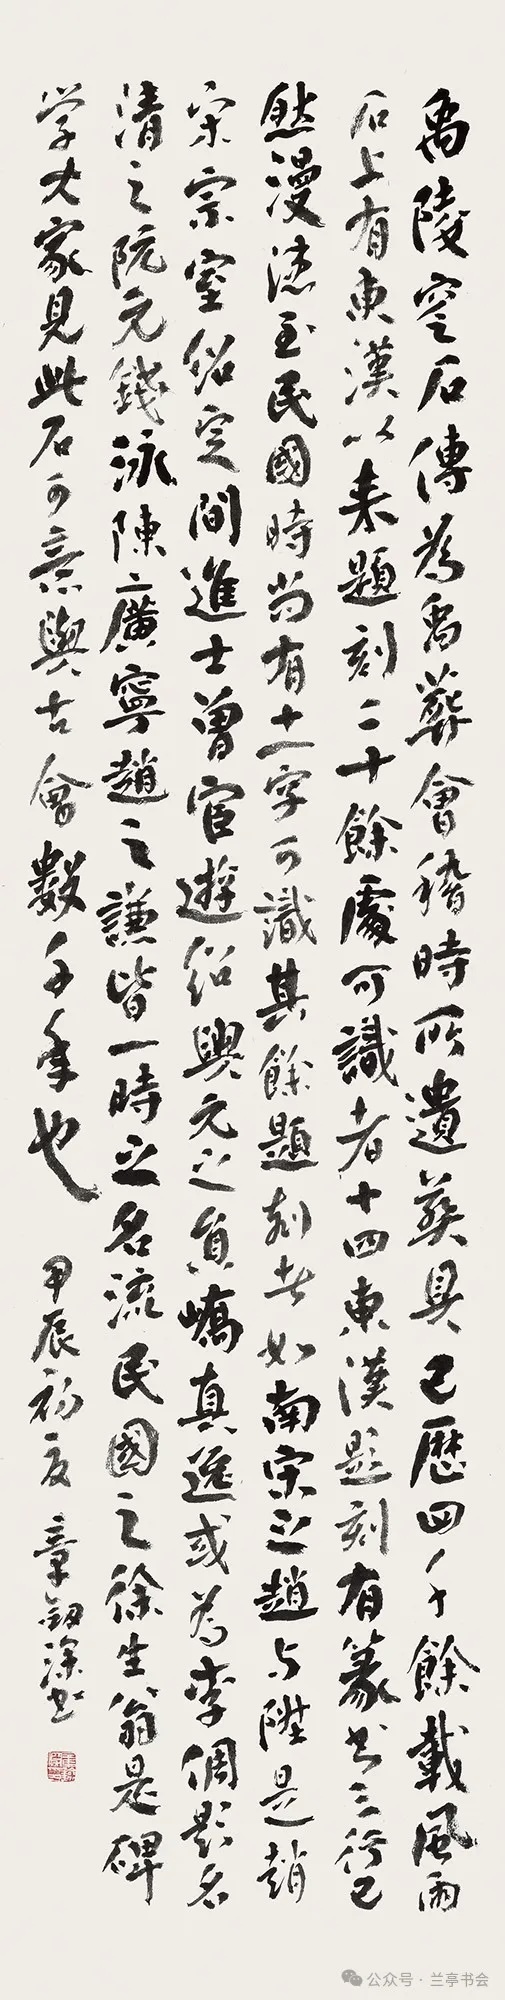 禹陵窆石傳為禹葬會稽時所遺葬具已歷四千餘載風雨
石上有東漢以來題刻二十餘處可識者十四東漢題刻有篆书三行已
然漫漶至民國時尚有十一字可識其餘題刻者如南宋之趙与陞是趙
宋宗室紹定間進士曾官遊紹興元之員嶠真逸或為李倜題名
清之阮元錢泳陳廣寧趙之謙皆一時之名流民國之徐生翁是碑
学大家見此石可意與古會數千年也
甲辰初夏 章劍深书
公众号·兰亭书会